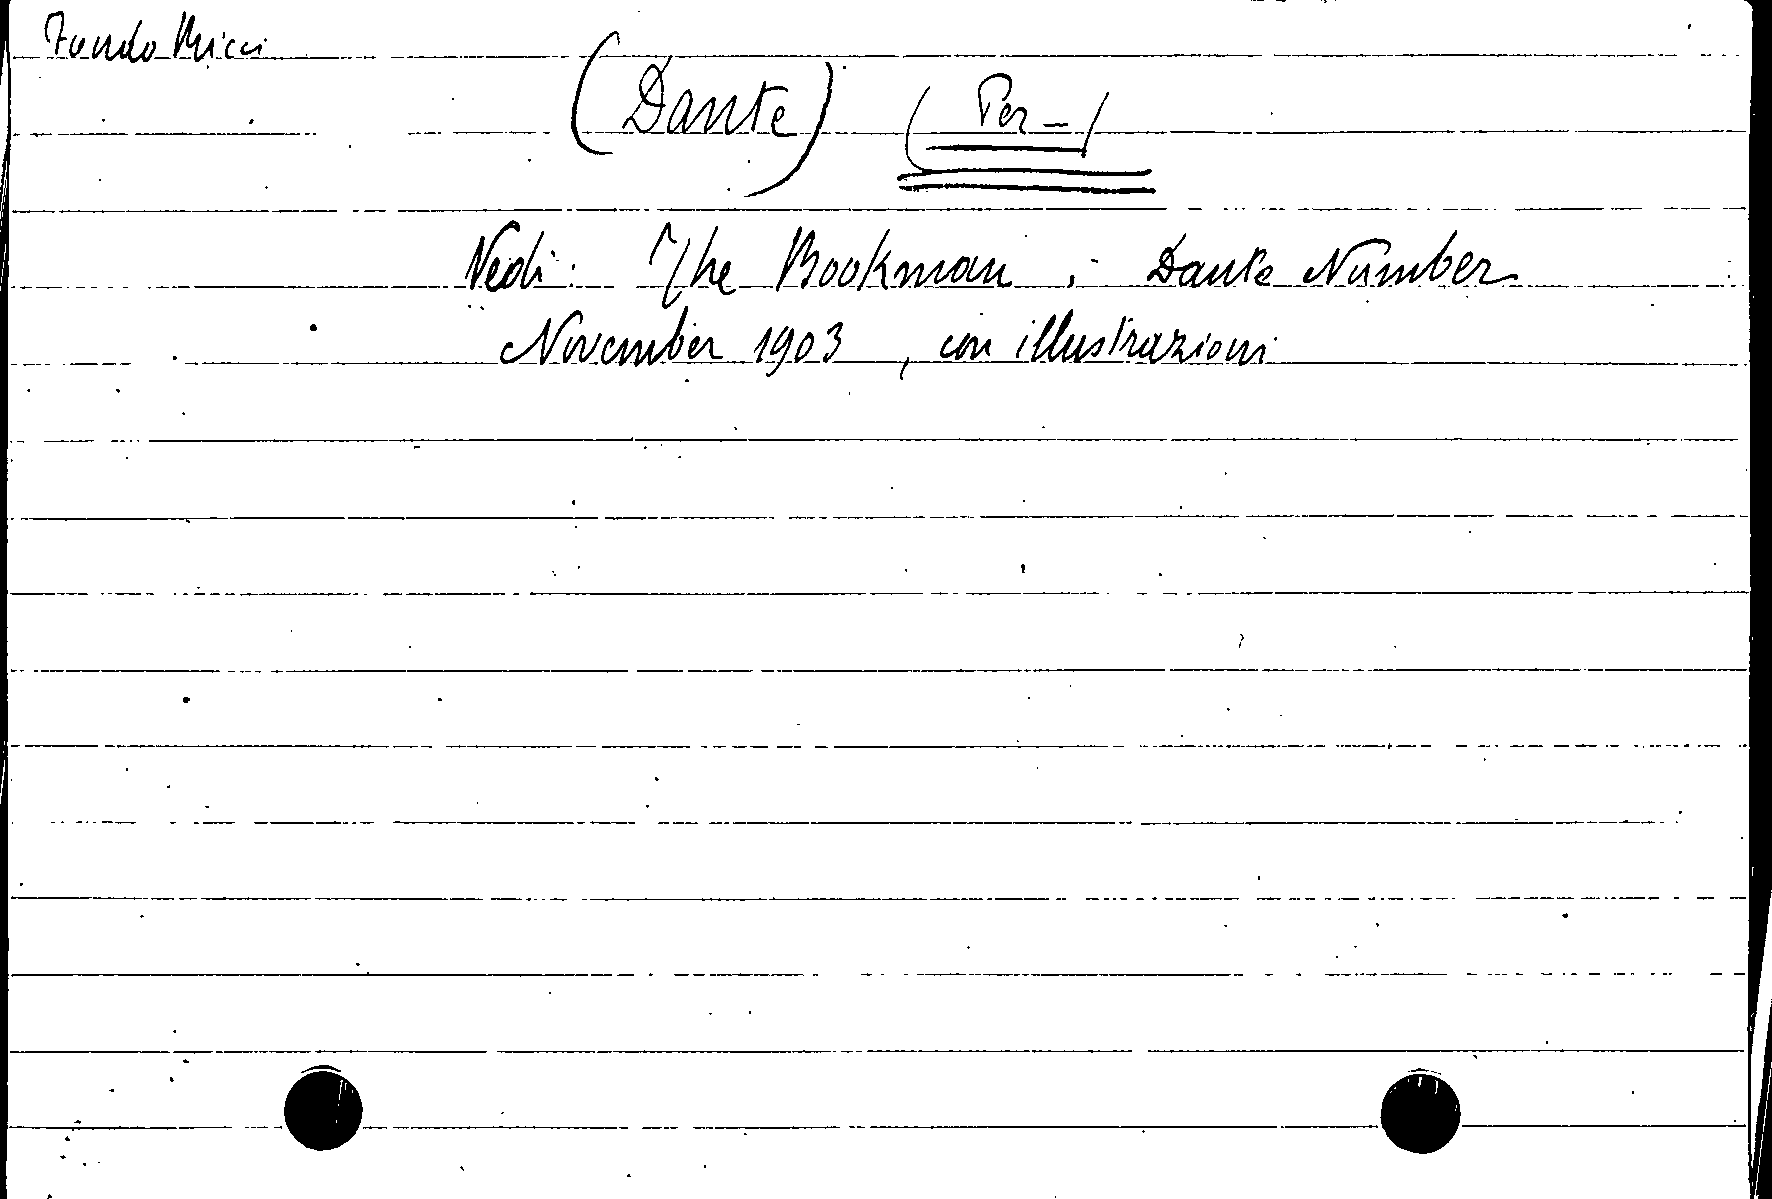 Fondo Ricci
(Dante) (Per-)
Vedi: The Bookman, Dante Number
November 1903, con illustrazioni